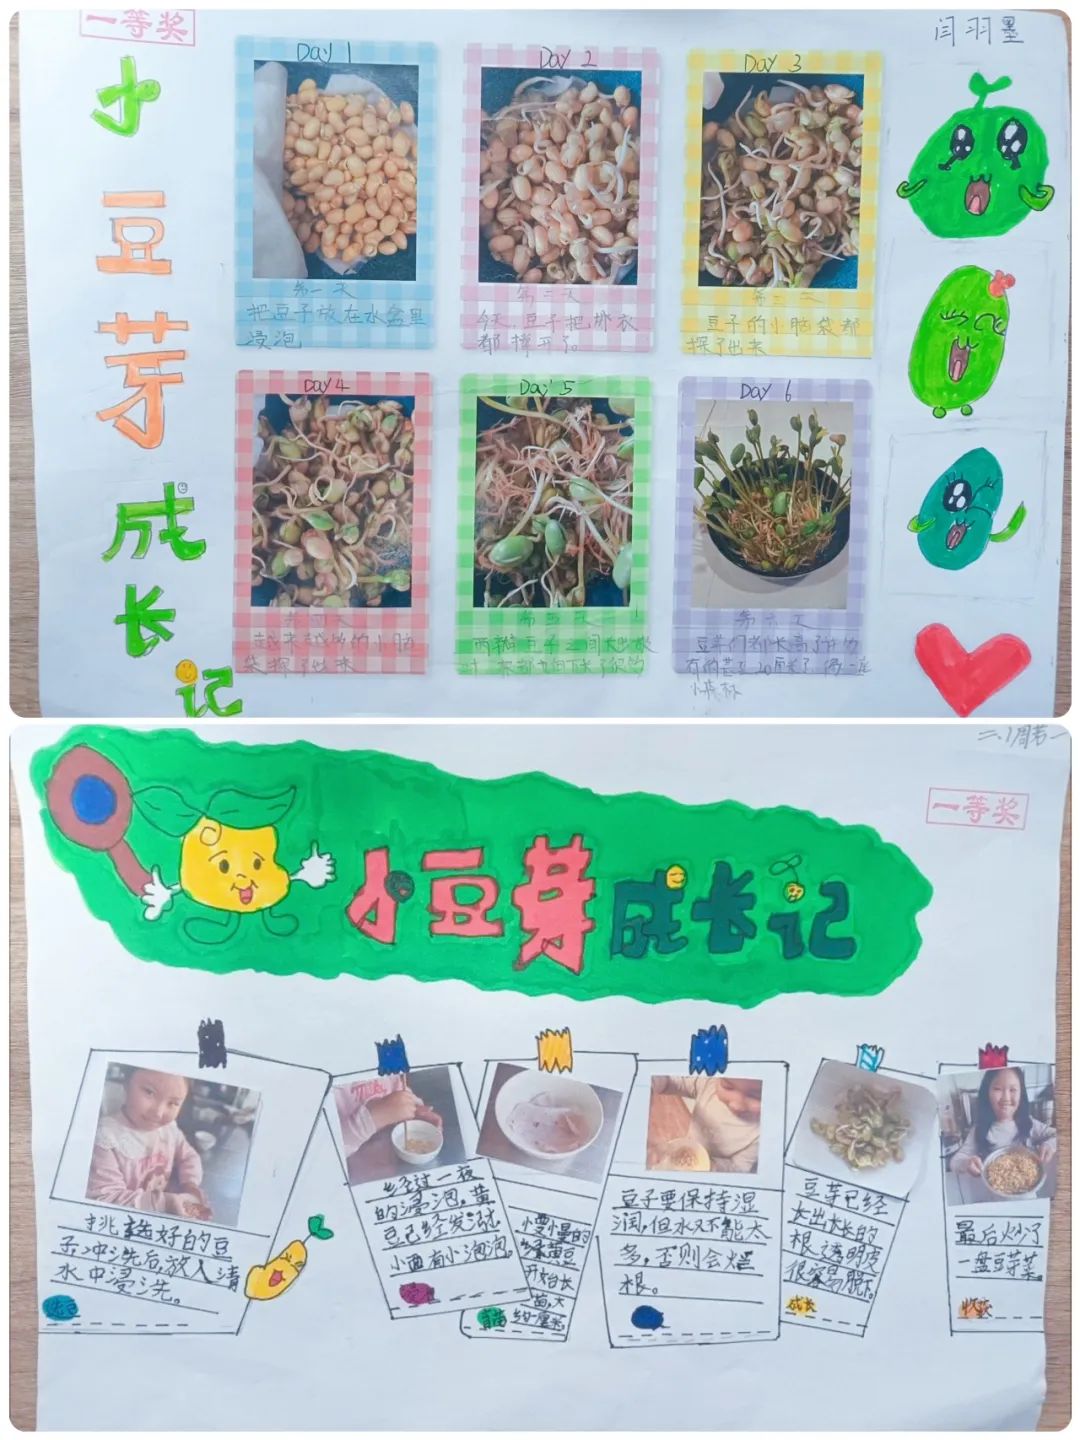 一等奖
闫羽墨
小
豆
芽
成
长
记
Day 1
第一天
把豆子放在水盆里
浸泡
Day 2
第二天
今天,豆子把外衣
都撑开了。
Day 3
第三天
豆子的小脑袋都
探了出来
Day 4
第四天
越来越多的小脑
袋探了出来
Day 5
第五天
两瓣豆子之间长出嫩
叶
Day 6
第六天
豆芽们都长高了
有的甚至20厘米了
二.1周若一
一等奖
小豆芽成长记
挑选好的豆
子冲洗后,放入清
水中浸洗。
选豆
经过一夜
的浸泡。黄
豆已经发涨
小面有小泡泡。
慢慢的
绿黄豆
开始长
苗,大
约一厘米。
育苗
豆子要保持湿
润,但水又不能太
多,否则会烂
根。
豆芽已经
长出长长的
根,透明皮
很容易脱。
成长
最后炒了
一盘豆芽菜。
收获